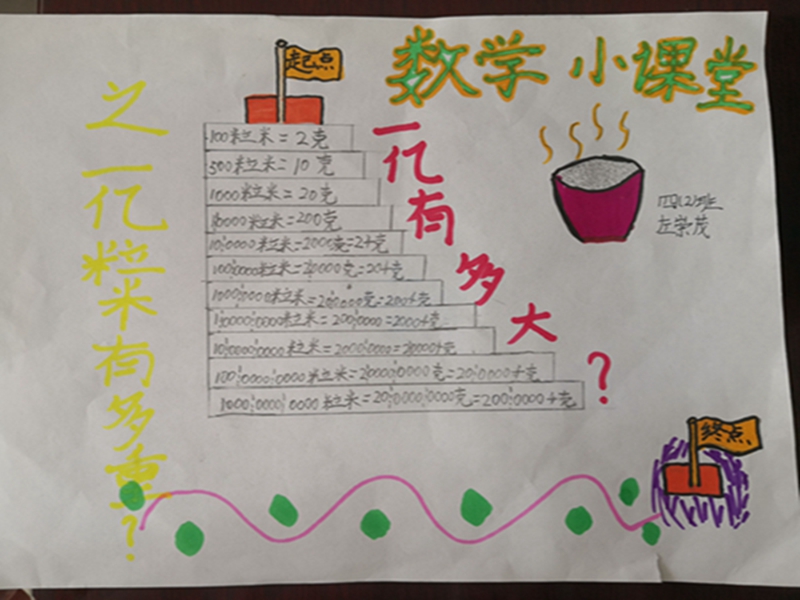 数学小课堂
一亿有多大？
之一亿粒米有多重？
起点
100粒米=2克
500粒米=10克
1000粒米=20克
10000粒米=200克
10¦0000粒米=2000克=2千克
100¦0000粒米=2¦0000克=20千克
1000¦0000粒米=20¦0000克=200千克
1¦0000¦0000粒米=200¦0000=2000千克
10¦0000¦0000粒米=2000¦0000=2¦0000千克
100¦0000¦0000粒米=2¦0000¦0000克=20¦0000千克
1000¦0000¦0000粒米=20¦0000¦0000克=200¦0000千克
四(2)班
左崇茂
终点